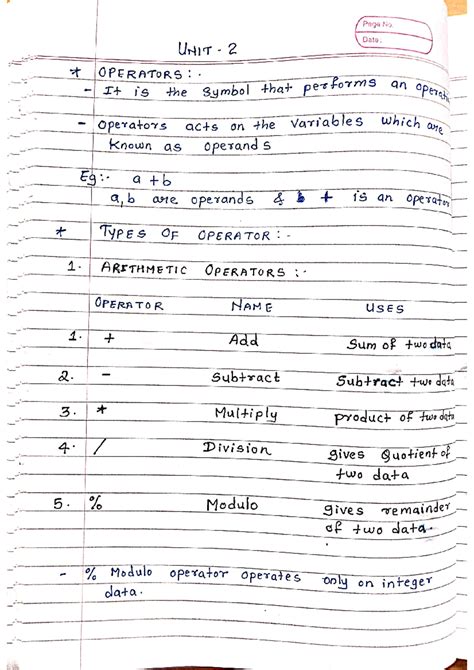 Page No.
Date.
UNIT - 2
* OPERATORS :-
- It is the symbol that performs an operat
- operators acts on the variables which are
known as operands
Eg:- a + b
a, b are operands & + is an operator
* TYPES OF OPERATOR :-
1. ARITHMETIC OPERATORS :-
OPERATOR NAME USES
1. + Add Sum of two data
2. - Subtract Subtract two data
3. * Multiply product of two data
4. / Division gives Quotient of
two data
5. % Modulo gives remainder
of two data.
- % Modulo operator operates only on integer
data.